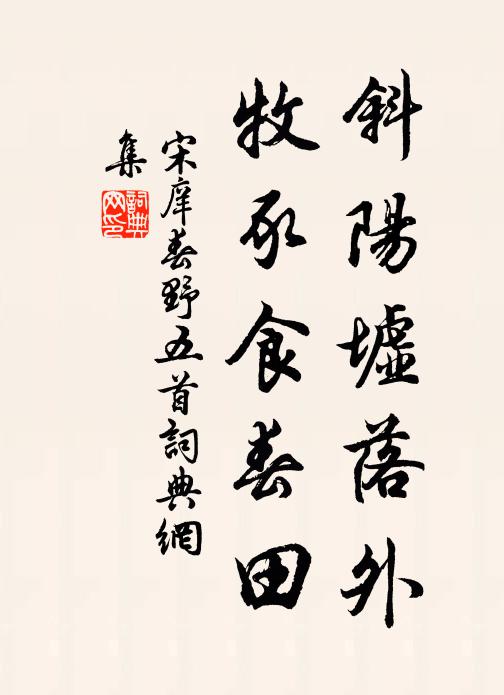 斜陽墟落外
牧豕食春田
宋庠春野五首詞典網
集
詞典網印